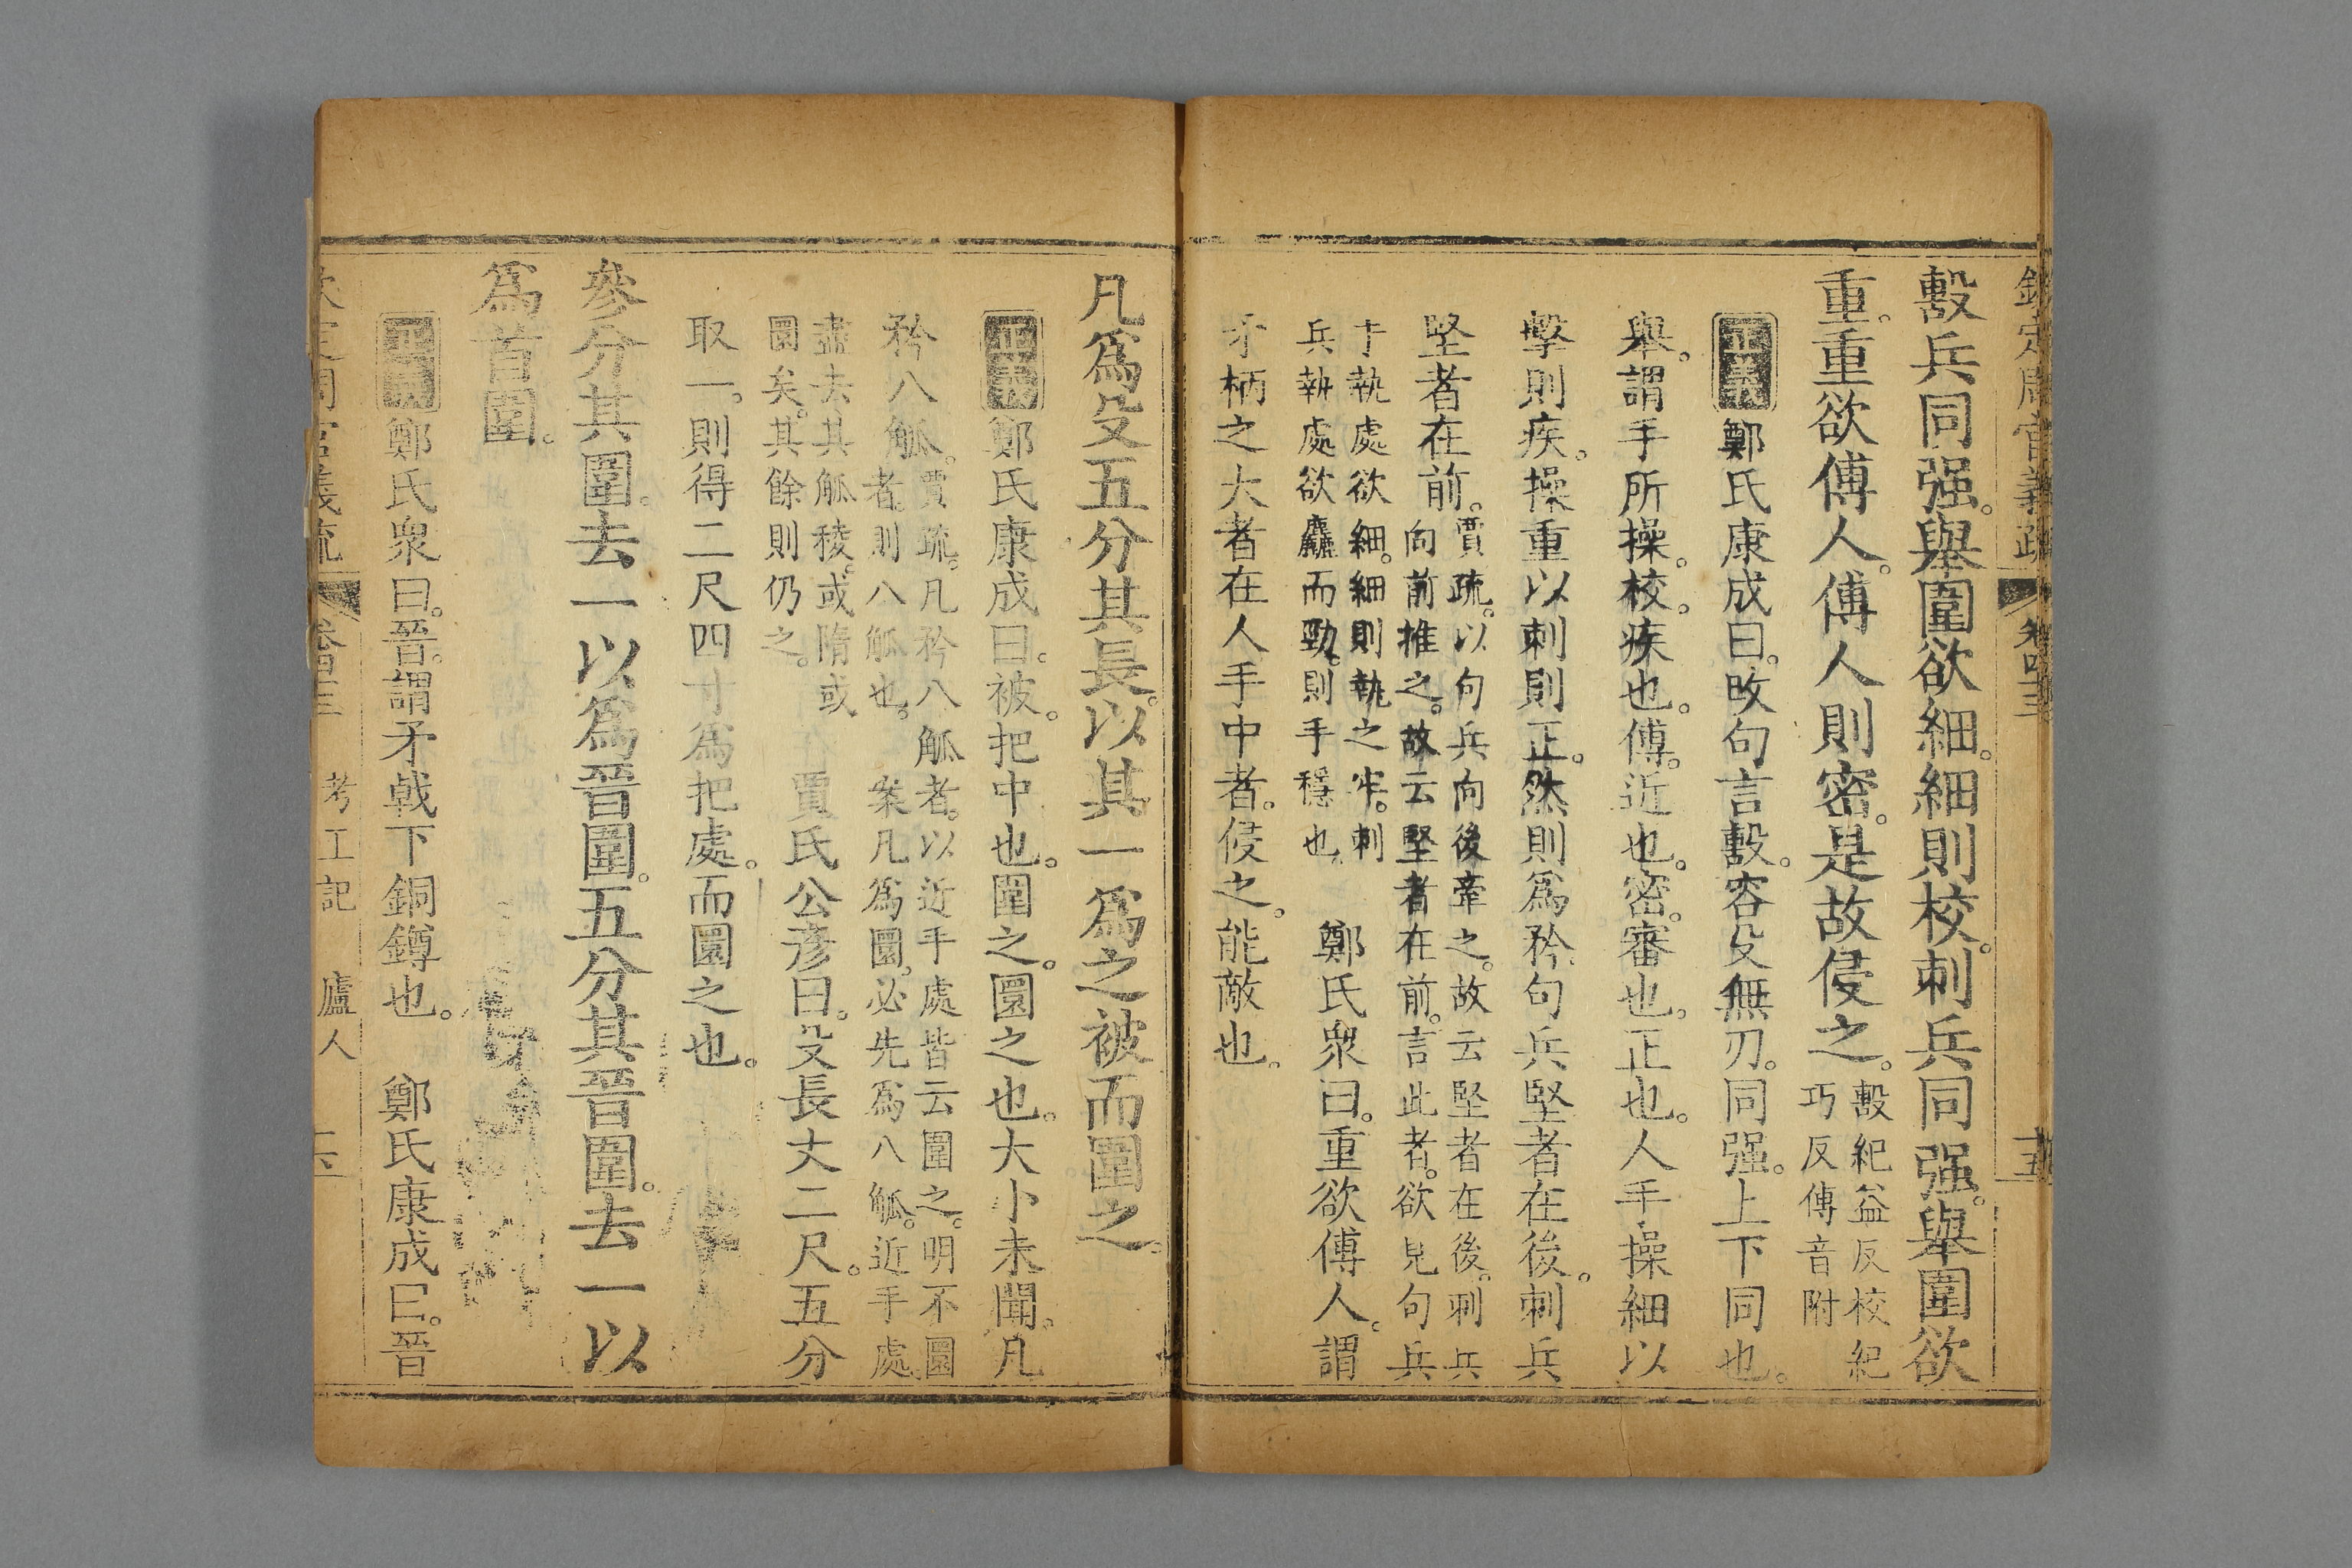 欽定周官義疏 卷四十三 十五
毄兵同强。舉圍欲細。細則校。刺兵同强。舉圍欲
重。重欲傅人。傅人則密。是故侵之。毄紀益反校紀
巧反傅音附
正義鄭氏康成曰。改句言毄。容殳無刃。同强。上下同也。
舉。謂手所操。校。疾也。傅。近也。密。審也。正也。人手操細以
擊則疾。操重以刺則正。然則爲矜句兵堅者在後。刺兵
堅者在前。賈疏。以句兵向後牽之。故云堅者在後。刺兵
向前推之。故云堅者在前。言此者。欲見句兵
于執處欲細。細則執之牢。刺
兵執處欲麤而勁。則手穩也。鄭氏衆曰。重欲傅人。謂
矛柄之大者在人手中者。侵之。能敵也。
凡爲殳五分其長。以其一爲之被而圍之。
正義鄭氏康成曰。被。把中也。圍之。圜之也。大小未聞。凡
矜八觚。賈疏。凡矜八觚者。以近手處皆云圍之。明不圜
者。則八觚也。案凡爲圜。必先爲八觚。近手處。
盡去其觚稜。或隋或
圜矣。其餘則仍之。賈氏公彦曰。殳長丈二尺。五分
取一。則得二尺四寸爲把處。而圜之也。
參分其圍。去一以爲晉圍。五分其晉圍。去一以
爲首圍。
正義鄭氏衆曰。晉。謂矛戟下銅鐏也。鄭氏康成曰。晉
欽定周官義疏 卷四十三 考工記 廬人